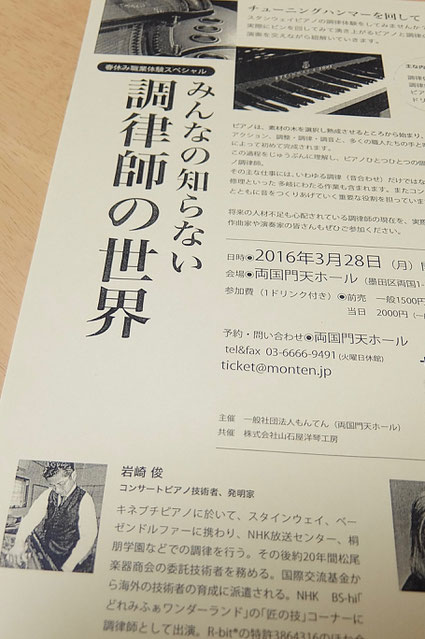 チューニングハンマーを回して
春休み職業体験スペシャル
みんなの知らない
調律師の世界
ピアノは、素材の木を選択し熟成させるところから始まり、
アクション、調整・調律・調音と、多くの職人たちの手と
によって初めて完成されます。
この過程をじゅうぶんに理解し、ピアノひとつひとつの
ノ調律師。
その主な仕事には、いわゆる調律（音合わせ）だけではな
修理といった多岐にわたる作業も含まれます。またコン
とともに音をつくりあげていく重要な役割を担っていま
将来の人材不足も心配されている調律師の現在を、実際
作曲家や演奏家の皆さんもぜひご参加ください。
日時◉2016年3月28日（月）
会場◉両国門天ホール（墨田区両国1-
参加費（1ドリンク付き）◉前売 一般1500円
当日 2000円（一
予約・問い合わせ◉両国門天ホール
tel&fax 03-6666-9491（火曜日休館）
ticket@monten.jp
主催 一般社団法人もんてん（両国門天ホール）
共催 株式会社山石屋洋琴工房
岩崎 俊
コンサートピアノ技術者、発明家
キネブチピアノに於いて、スタインウェイ、ベー
ゼンドルファーに携わり、NHK放送センター、桐
朋学園などでの調律を行う。その後約20年間松尾
楽器商会の委託技術者を務める。国際交流基金か
ら海外の技術者の育成に派遣される。NHK BS-hi「
どれみふぁワンダーランド」の「匠の技」コーナーに
調律師として出演。R-bit®の特許3864316のほか